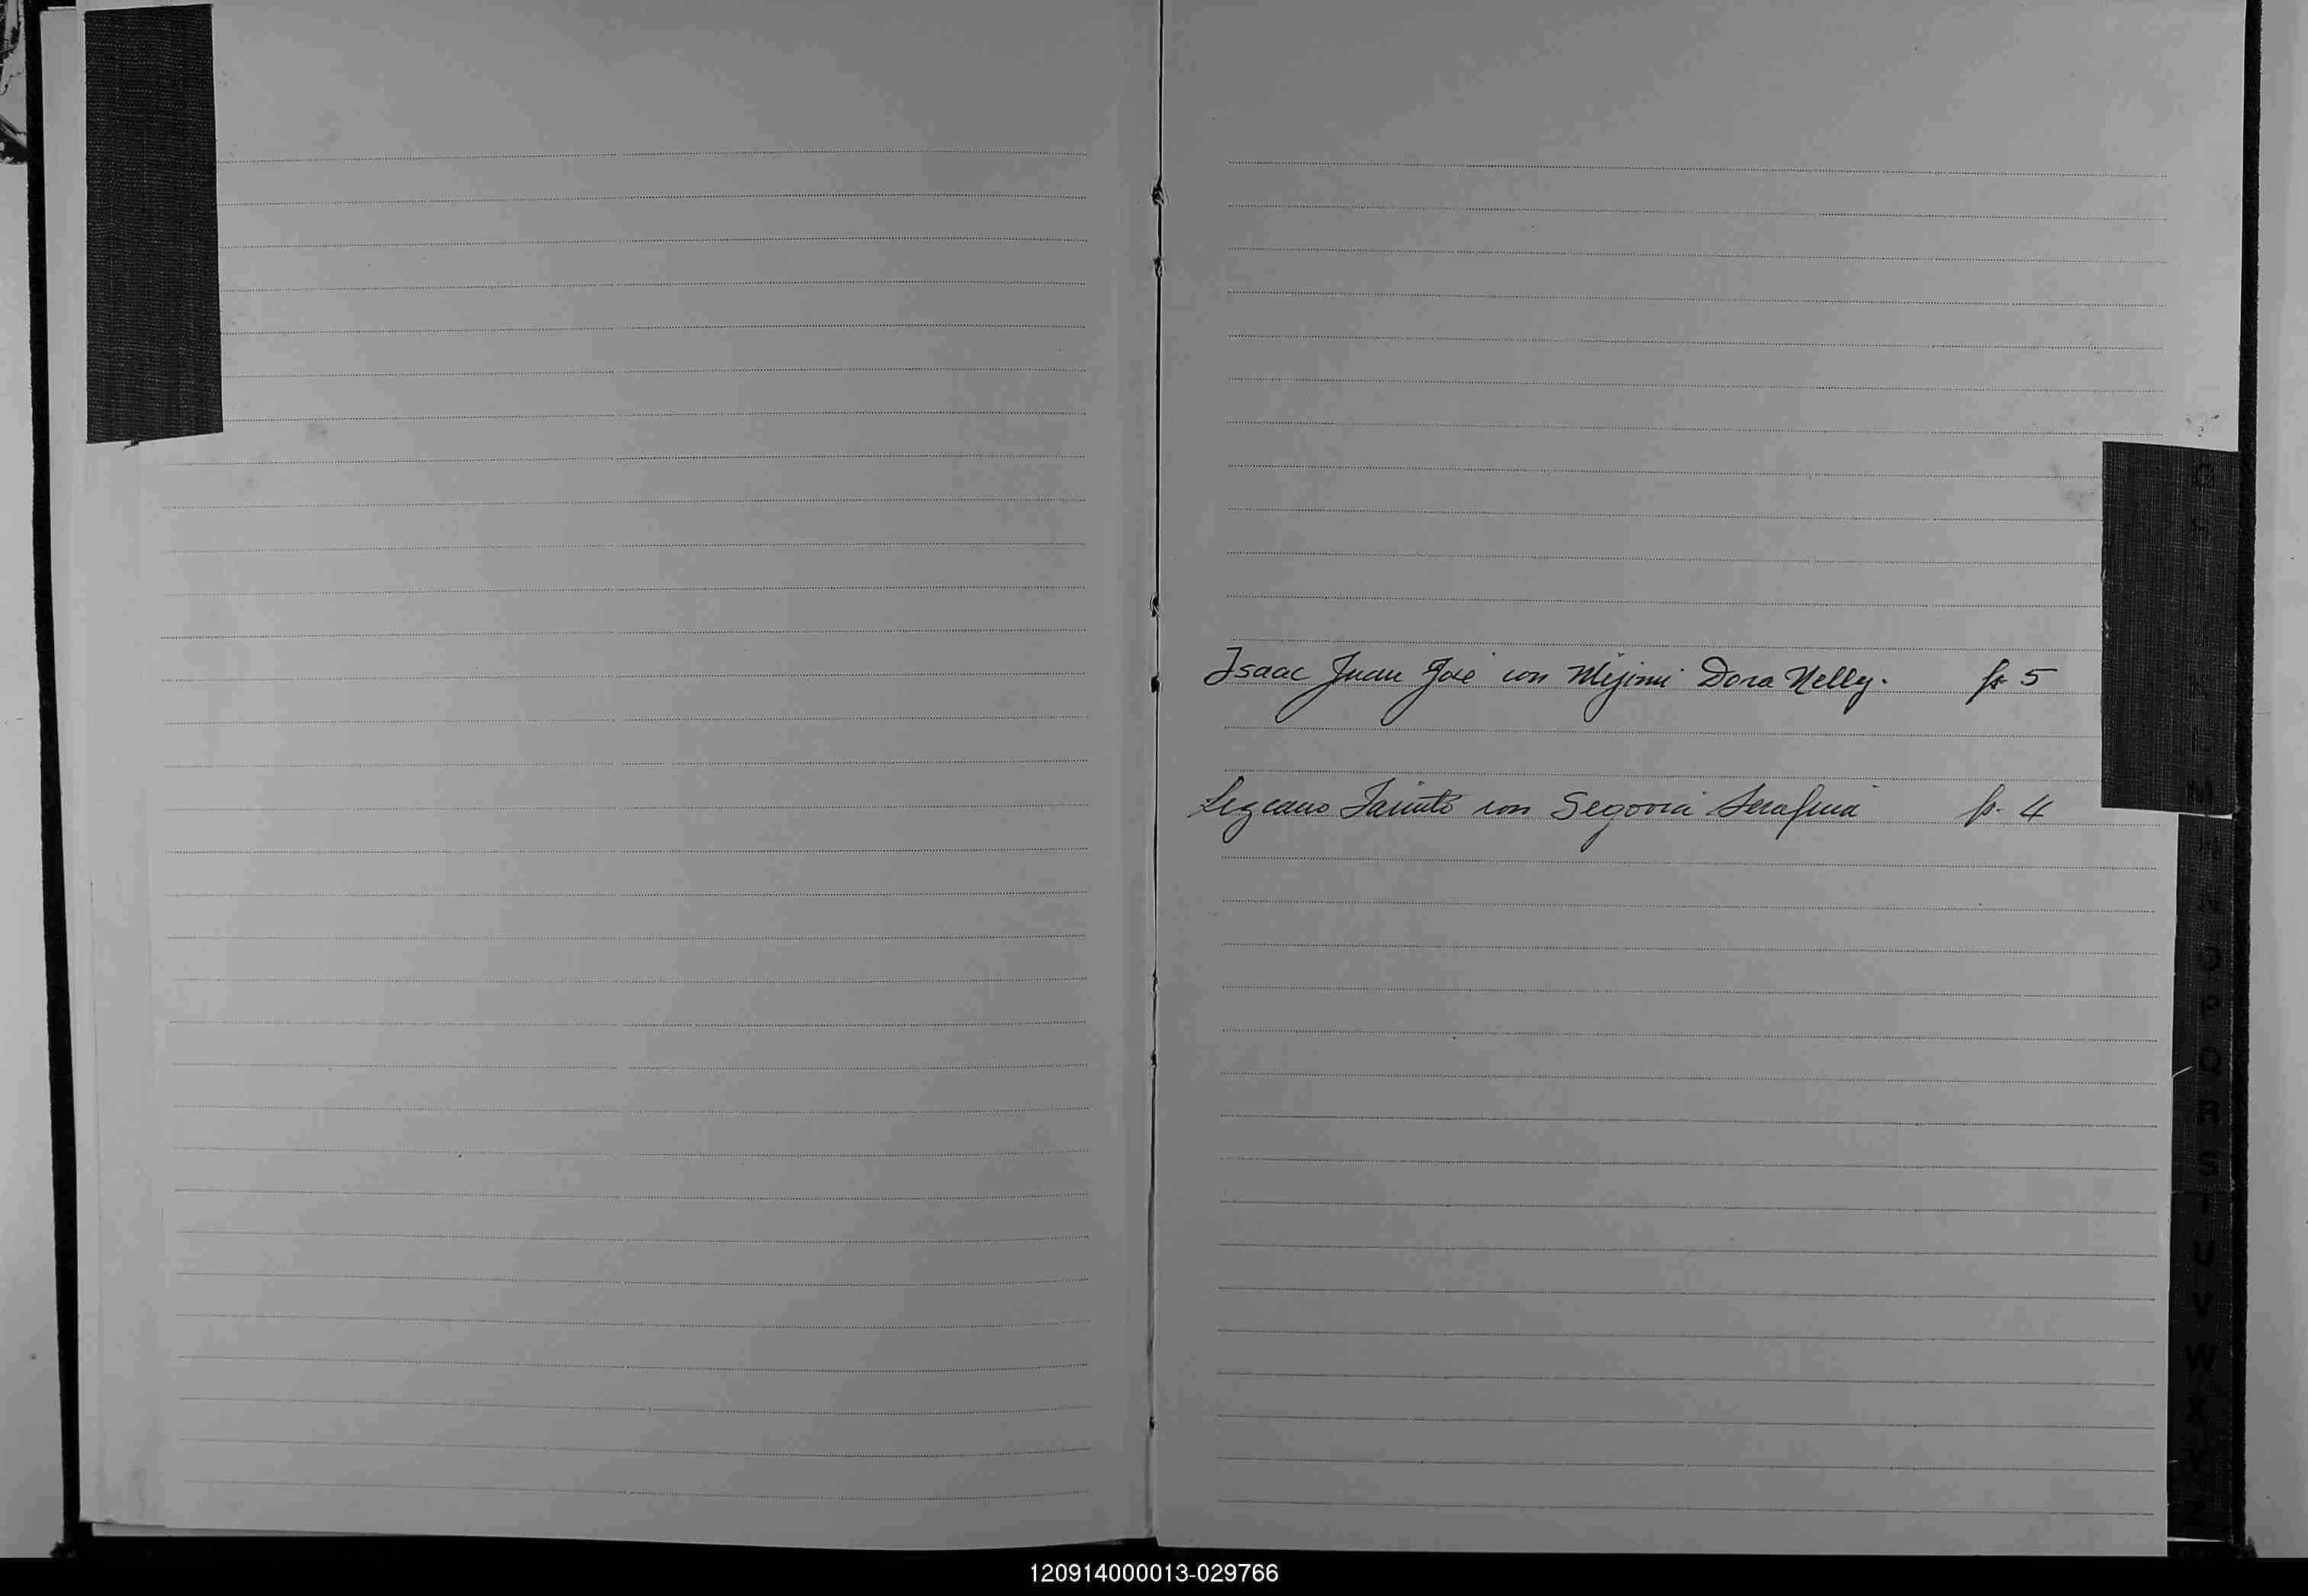 Isaac Juan José con Mijimi Dora Nelly. fs 5
Lezcano Jacinto con Segovia Serafina fs. 4
G
H
I
J
K
L
M
N
O
P
Q
R
S
T
U
V
W
X
Y
Z
120914000013-029766